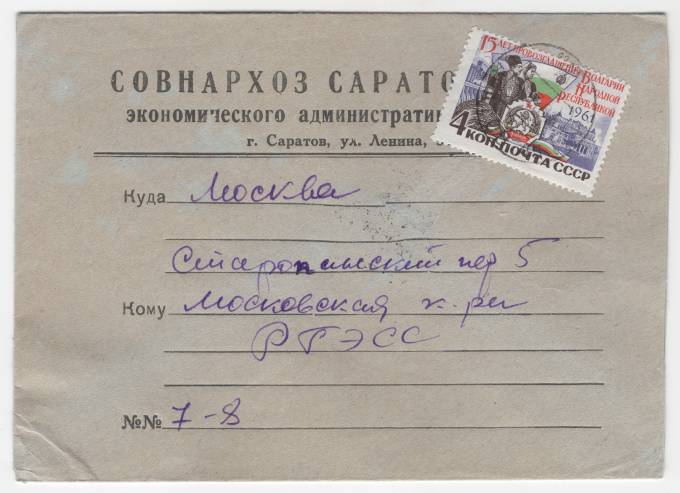 СОВНАРХОЗ САРАТО
экономического административн
г. Саратов, ул. Ленина,
15 ЛЕТ ПРОВОЗГЛАШЕНИЯ БОЛГАРИИ
НАРОДНОЙ
РЕСПУБЛИКОЙ
1961
4 КОП. ПОЧТА СССР
Куда Москва
Старопанский пер 5
Кому Московская к. ри
РТЭСС
№№ 7-8